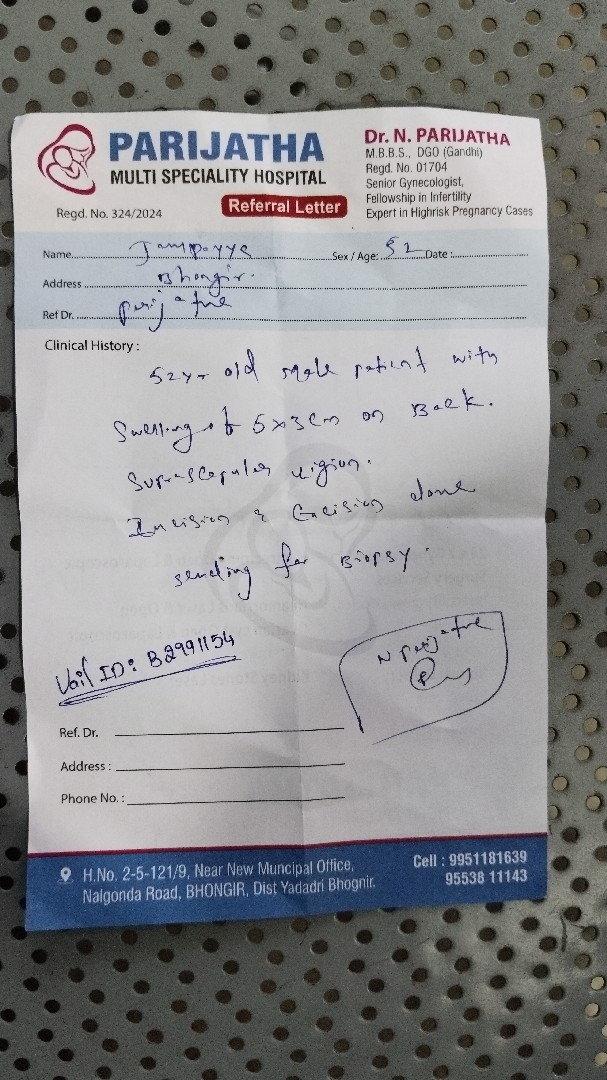 PARIJATHA
MULTI SPECIALITY HOSPITAL
Regd. No. 324/2024
Referral Letter
Dr. N. PARIJATHA
M.B.B.S., DGO (Gandhi)
Regd. No. 01704
Senior Gynecologist,
Fellowship in Infertility
Expert in Highrisk Pregnancy Cases
Name Sex / Age: 52 Date :
Address Bhongir.
Ref Dr.
Clinical History :
52yr old male patient with
Swelling of 5x3cm on Back.
Suprascapular region.
Incision & Excision done
sending for Biopsy.
Vail ID: B2991154
Ref. Dr.
Address :
Phone No. :
H.No. 2-5-121/9, Near New Muncipal Office,
Nalgonda Road, BHONGIR, Dist Yadadri Bhognir.
Cell : 9951181639
95538 11143